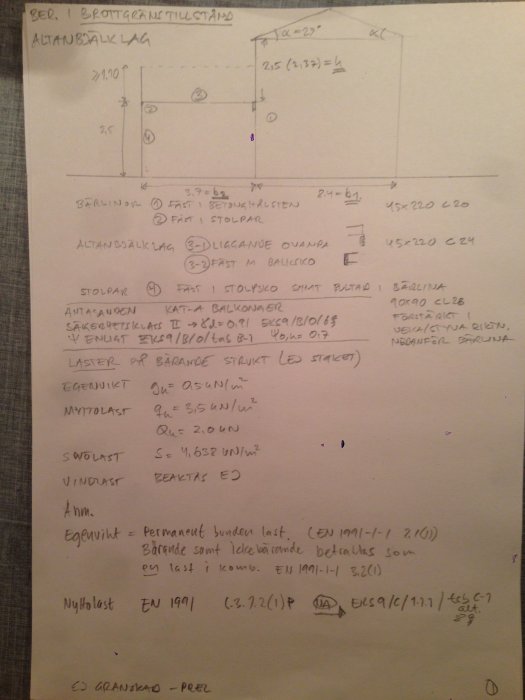 BER. 1 BROTTGRÄNSTILLSTÅND
ALTANBJÄLKLAG
α=23°
α
≥1.10
2,5 (2,37) = h
③
②
①
④
2.5
3.7 = b2
8.4 = b1
BÄRLINOR ① FÄST I BETONGHÅLSTEN 45x220 C20
② FÄST I STOLPAR
ALTANBJÄLKLAG ③-1 LIGGANDE OVANPÅ 45x220 C24
③-2 FÄST M BALKSKO
STOLPAR ④ FÄST I STOLPSKO SAMT BULTAD I BÄRLINA
90x90 C28
FÖRSTÄRKT I
VEKA/STYVA RIKTN.
NEDANFÖR BÄRLINA
ANTAGANDEN KAT-A BALKONGER
SÄKERHETSKLASS II → γd = 0.91 EKS9/B/0/6§
Ψ ENLIGT EKS9/B/0/tab B-1 Ψ0,k = 0.7
LASTER PÅ BÄRANDE STRUKT (EJ STAKET)
EGENVIKT gk = 0.5 kN/m²
NYTTOLAST qk = 3,5 kN/m²
Qk = 2,0 kN
SNÖLAST S = 4,638 kN/m²
VINDLAST BEAKTAS EJ
Anm.
Egenvikt = Permanent bunden last. (EN 1991-1-1 2.1(1))
Bärande samt Ickebärande betraktas som
en last i komb. EN 1991-1-1 3.2(1)
Nyttolast EN 1991 6.3.1.2(1)P NA EKS9/C/1.1.1/ tab C-1
alt.
EJ GRANSKAD - PREL
①